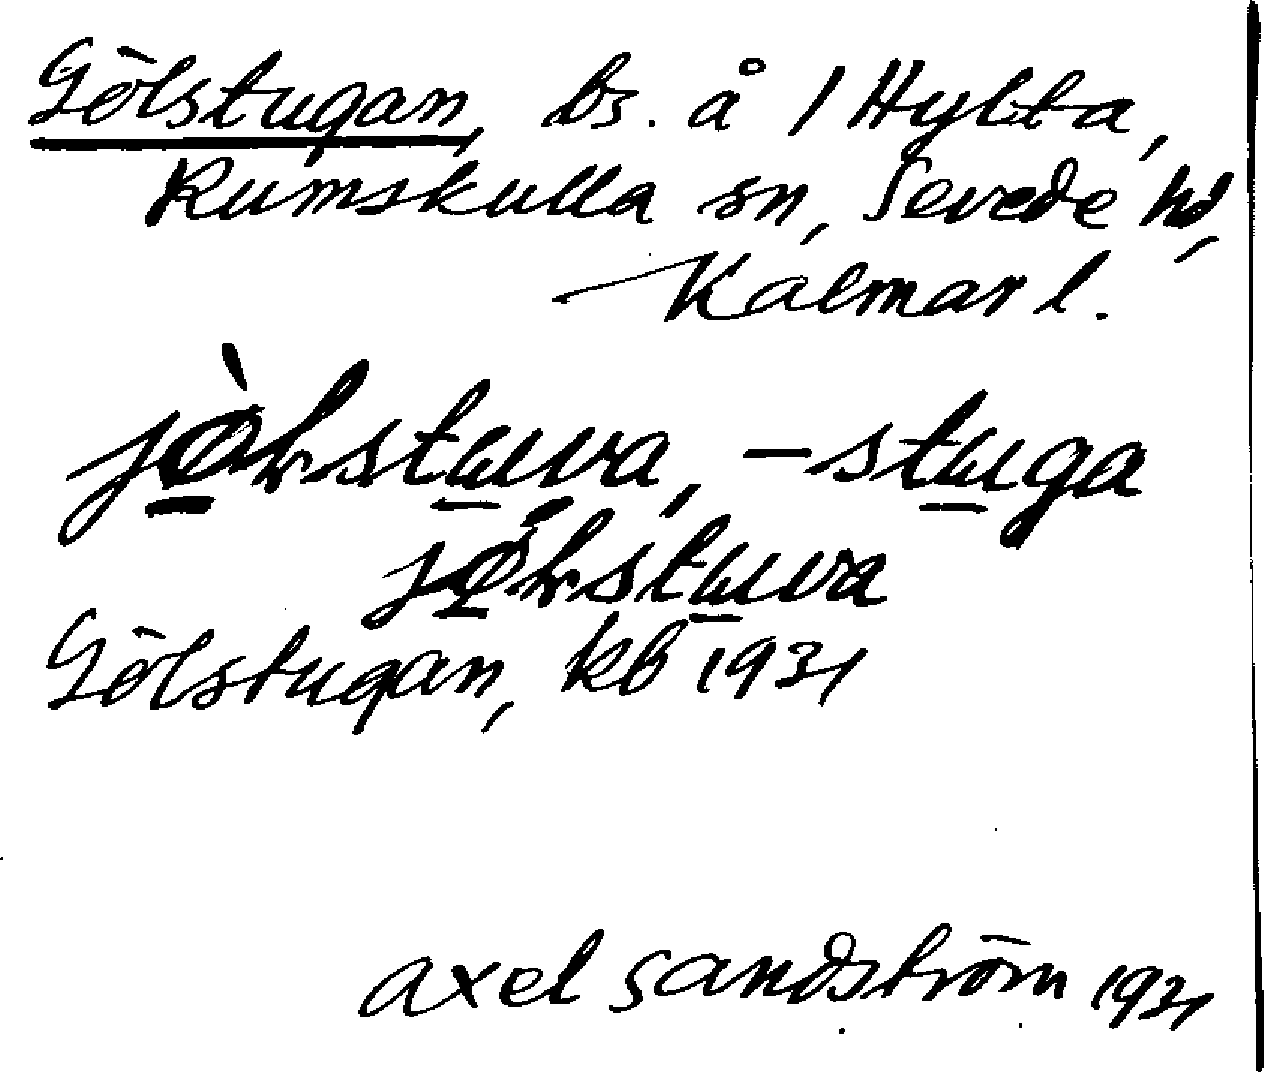 Gölstugan, bs. å 1 Hylta,
Rumskulla sn, Sevede hd,
Kalmar l.
Gölstugan, kb 1931
Axel Sandström 1931